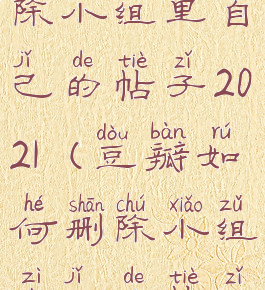 除小组里自
jǐ de tiè zǐ
己的帖子20
dòu bàn rú
21(豆瓣如
hé shān chú xiǎo zǔ
何删除小组
zì jǐ de tiè zǐ